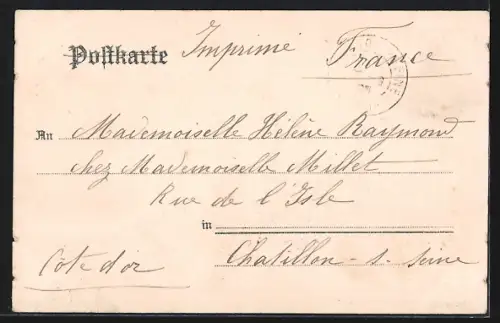 Postkarte Imprimé France
An Mademoiselle Hélène Raymond
chez Mademoiselle Millet
Rue de l'Isle
in
Chatillon-s-seine
Côte d'or